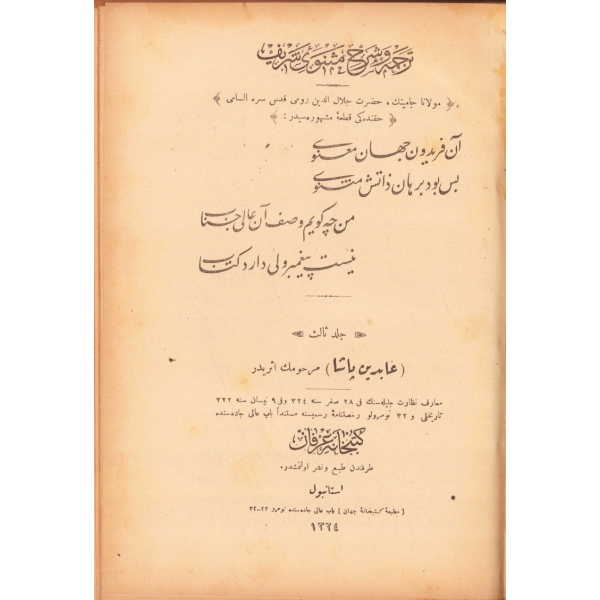 ترجمه و شرح مثنوئ شریف
﴿ مولانا جامینك ، حضرت جلال الدین رومی قدس سره السامی ﴾
﴿ حقنده‌کی قطعهٔ مشهوره سیدر : ﴾
آن فریدون جهان معنوی
بس بود برهان ذاتش مثنوی
من چه کویم وصف آن عالی جناب
نیست پیغمبر ولی دارد کتاب
جلد ثالث
( عابدین پاشا ) مرحومك اثریدر
معارف نظارت جلیله سنك فی ٢٨ صفر سنه ٣٢٤ و فی ٩ نیسان سنه ٣٢٢
تاریخلی و ٣٢ نومرولو رخصتنامهٔ رسمیسنه مستنداً باب عالی جاده سنده
کتبخانهٔ عرفان
طرفندن طبع و نشر اولنمشدر.
استانبول
[ مطبعهٔ کتبخانهٔ جهان ] باب عالی جاده سنده نومرو ٢٣-٢٤
١٣٢٤